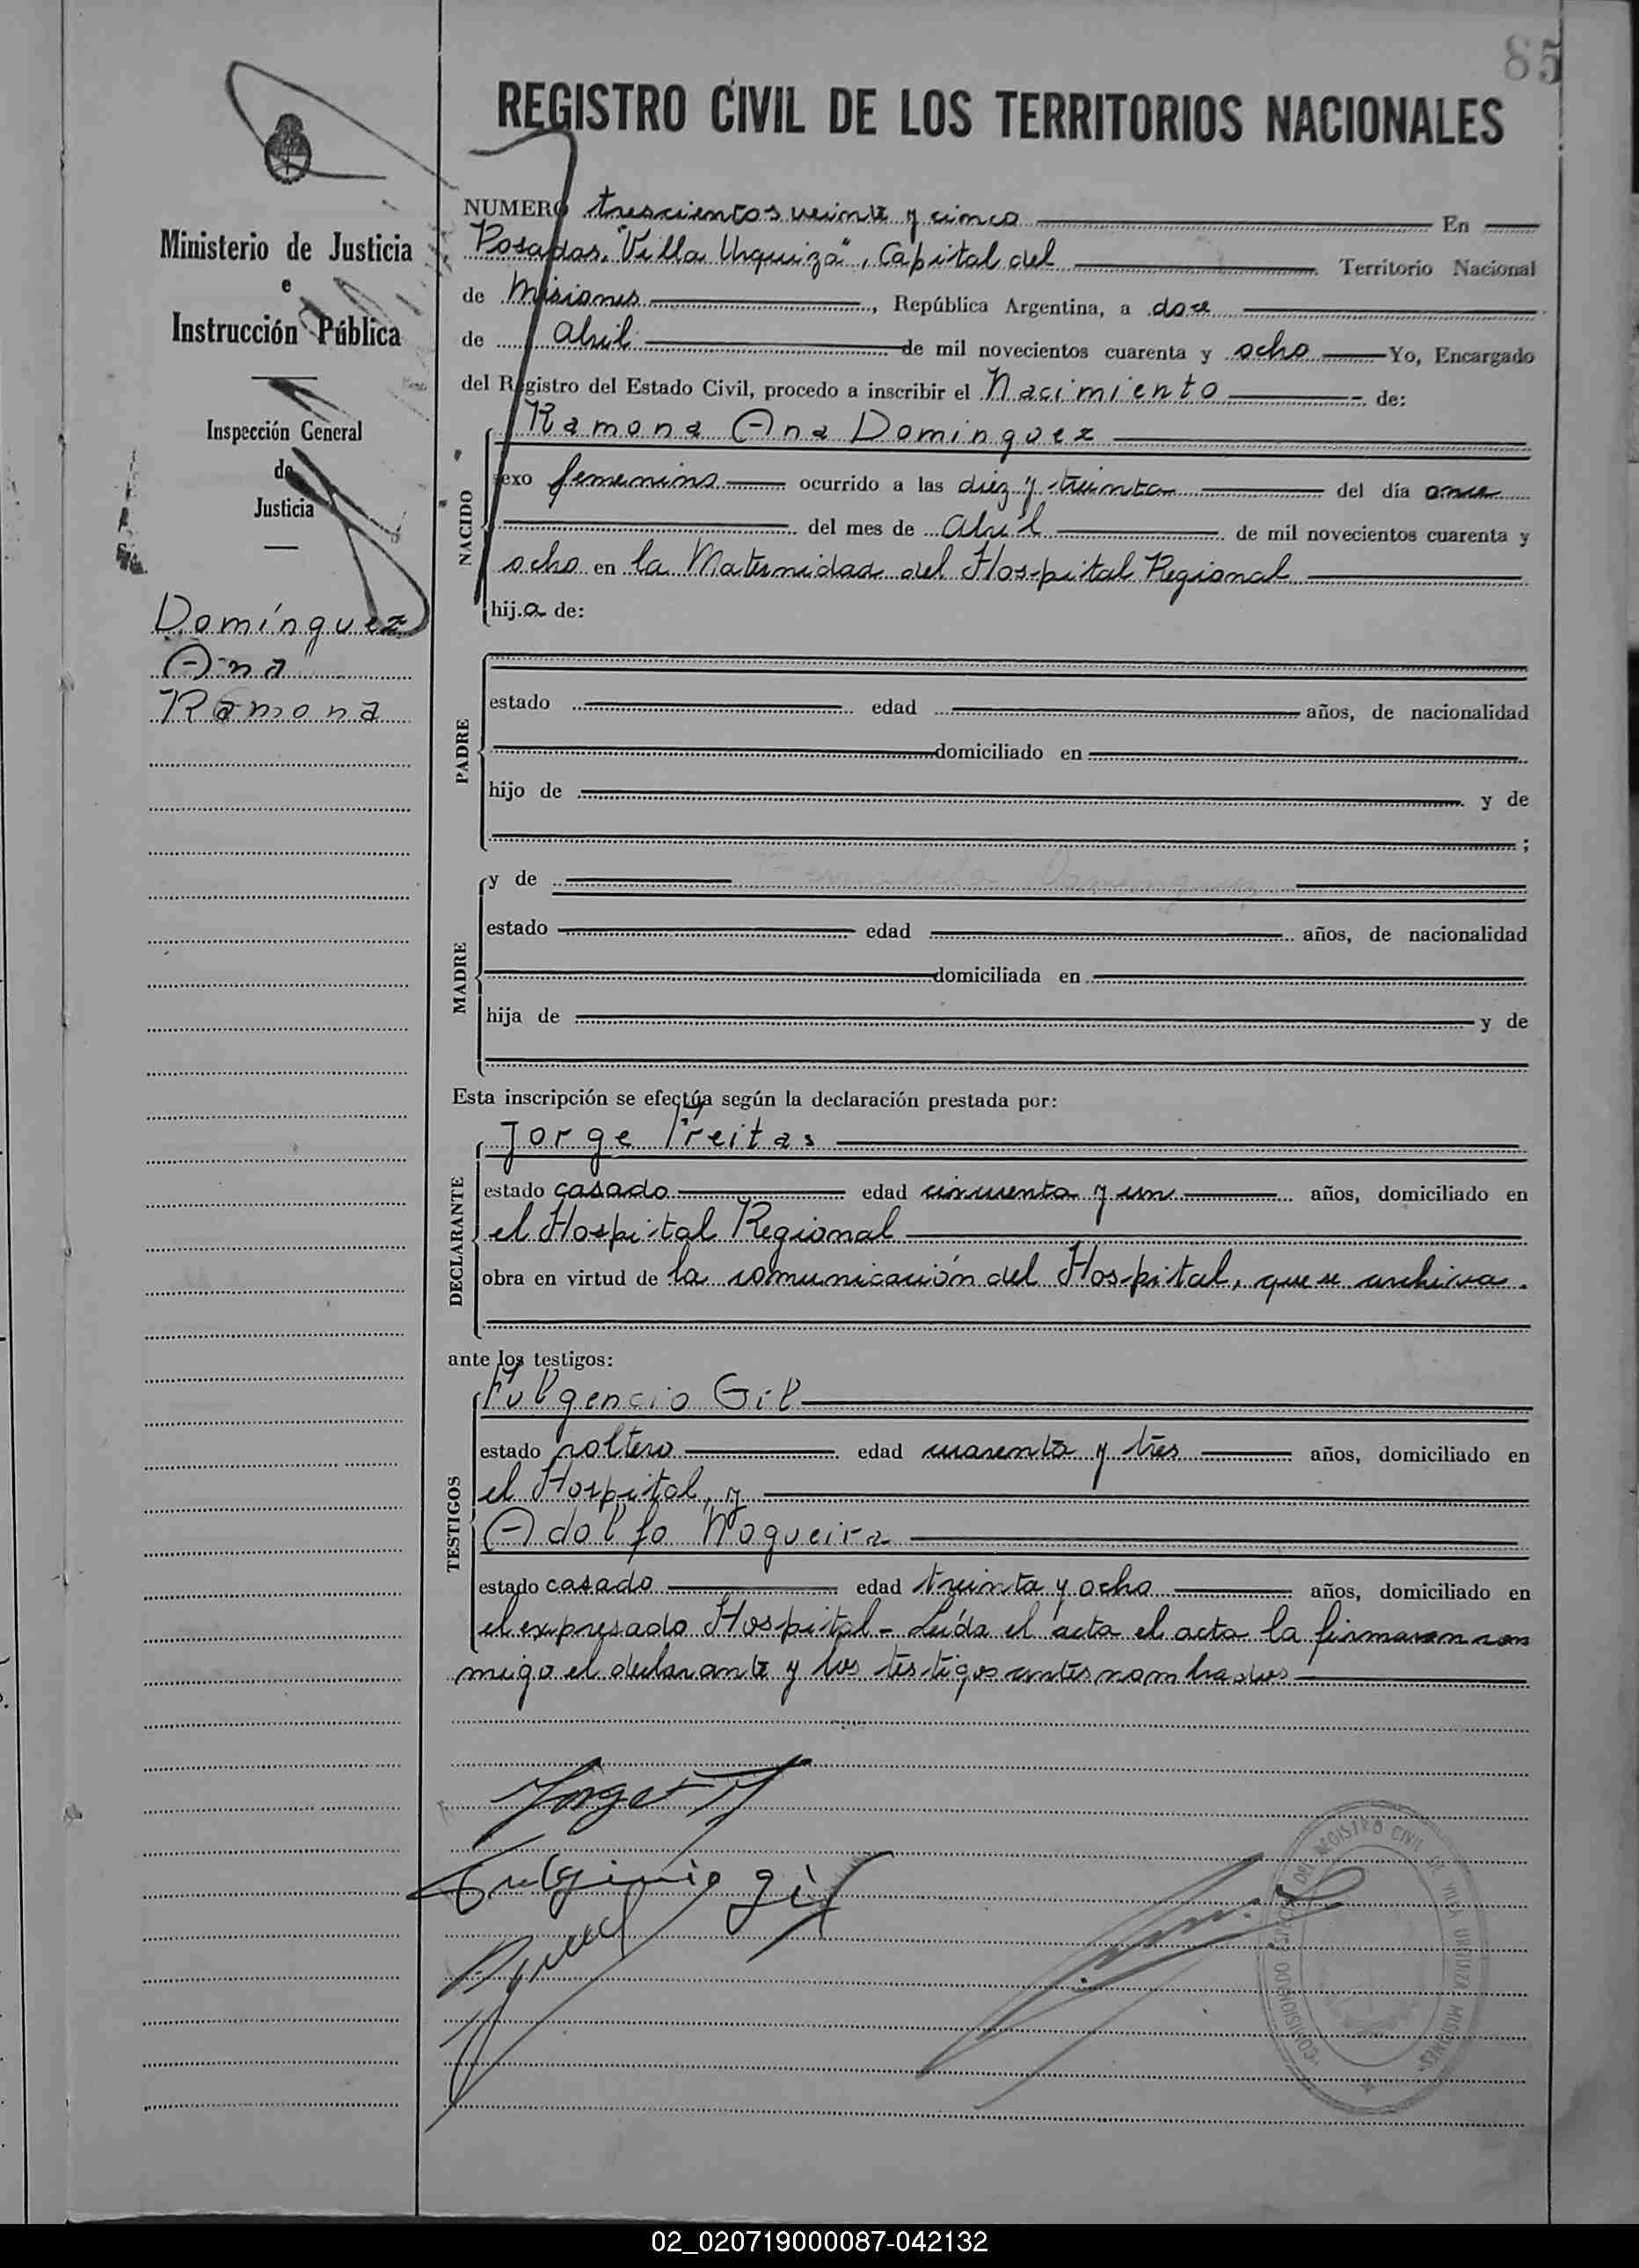 85
REGISTRO CIVIL DE LOS TERRITORIOS NACIONALES
Ministerio de Justicia
e
Instrucción Pública
Inspección General
de
Justicia
Domínguez
Ana
Ramona
NUMERO trescientos veinte y cinco En
Posadas, "Villa Urquiza", Capital del Territorio Nacional
de Misiones, República Argentina, a doce
de Abril de mil novecientos cuarenta y ocho Yo, Encargado
del Registro del Estado Civil, procedo a inscribir el Nacimiento de:
NACIDO
Ramona Ana Dominguez
sexo femenino ocurrido a las diez y treinta del día once
del mes de Abril de mil novecientos cuarenta y
ocho en la Maternidad del Hospital Regional
hij.a de:
PADRE
estado edad años, de nacionalidad
domiciliado en
hijo de y de
;
MADRE
y de Dominguez
estado edad años, de nacionalidad
domiciliada en
hija de y de
Esta inscripción se efectúa según la declaración prestada por:
DECLARANTE
Jorge Freitas
estado casado edad cincuenta y un años, domiciliado en
el Hospital Regional
obra en virtud de la comunicación del Hospital, que se archiva.
ante los testigos:
TESTIGOS
Fulgencio Gil
estado soltero edad cuarenta y tres años, domiciliado en
el Hospital, y
Adolfo Nogueira
estado casado edad treinta y ocho años, domiciliado en
el expresado Hospital - Leída el acta el acta la firmaron con
migo el declarante y los testigos antes nombrados
Jorge
Fulginio gil
COMISIONADO DEL REGISTRO CIVIL VILLA URQUIZA MISIONES
02_020719000087-042132